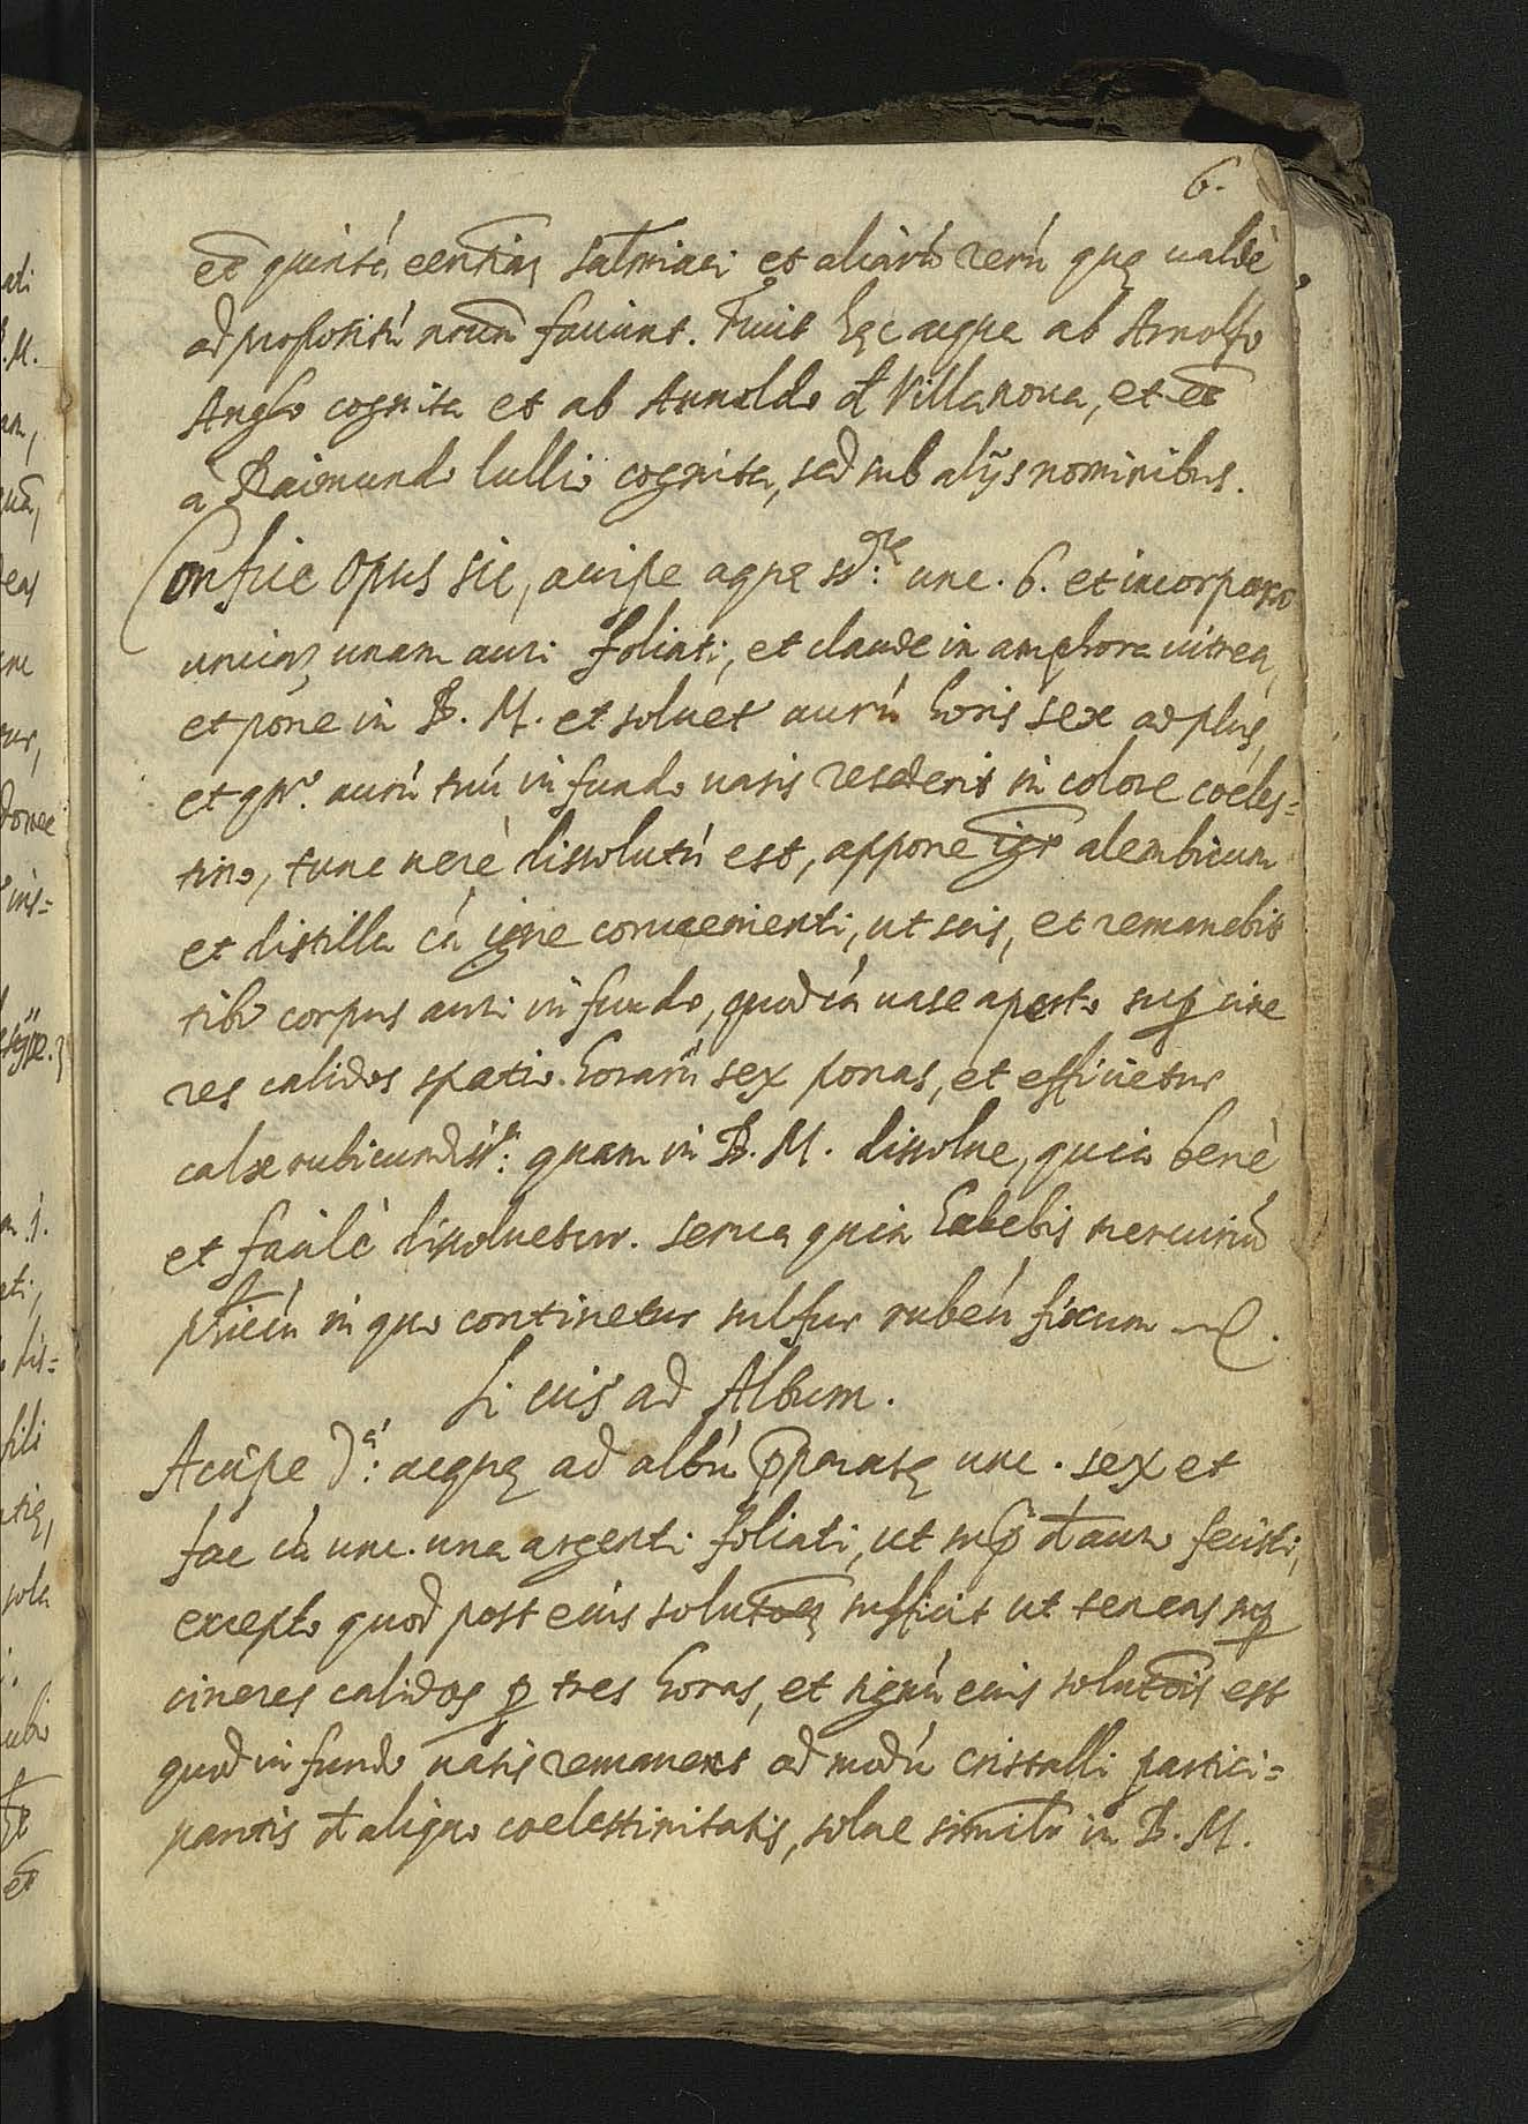 6.
et quintá eentiaȝ salmiaci et aliarú rerú quę ualdè
ad propositú nrum faciunt. Fuit hęc aqua ab Arnolfo
Anglo cognita et ab Arnoldo đ Villanoua, et et
à Raimundo lullio cognita, sed sub alijs nominibus.
Confice opus sic, accipe aquę sd:ctę unc. 6. et incorpora
unciaȝ unam auri foliati, et claude in amphora uitrea,
et pone in B. M. et soluet aurú horis sex ad plus,
et qńo. aurú tuú in fundo uasis resederit in colore coeles=
tino, tunc uerè dissolutú est, appone igr alembicum
et distilla cú igne conuenienti, ut scis, et remanebit
tibi corpus auri in fundo, quod cú uase aperto suꝑ cine
res calidos spatio horarú sex ponas, et efficietur
calx rubicundiss:a quam in B. M. dissolue, quia benè
et facilè dissoluetur. serua quia habebis mercuriú
phicú in quo continetur sulfur rubeú fixum
Si uis ad Album.
Accipe d:ꝭ aquę ad albú pparatę unc. sex et
fac cú unc. una argenti foliati, ut suꝑ đ auro fecisti,
excepto quod post eius solutoeȝ sufficit ut teneas suꝑ
cineres calidos ꝑ tres horas, et signú eius solutois est
quod in fundo uasis remanens ad modú cristalli partici=
pantis đ aliquo coelestinitatis, solue similr in B. M.
ati
B. M.
donec